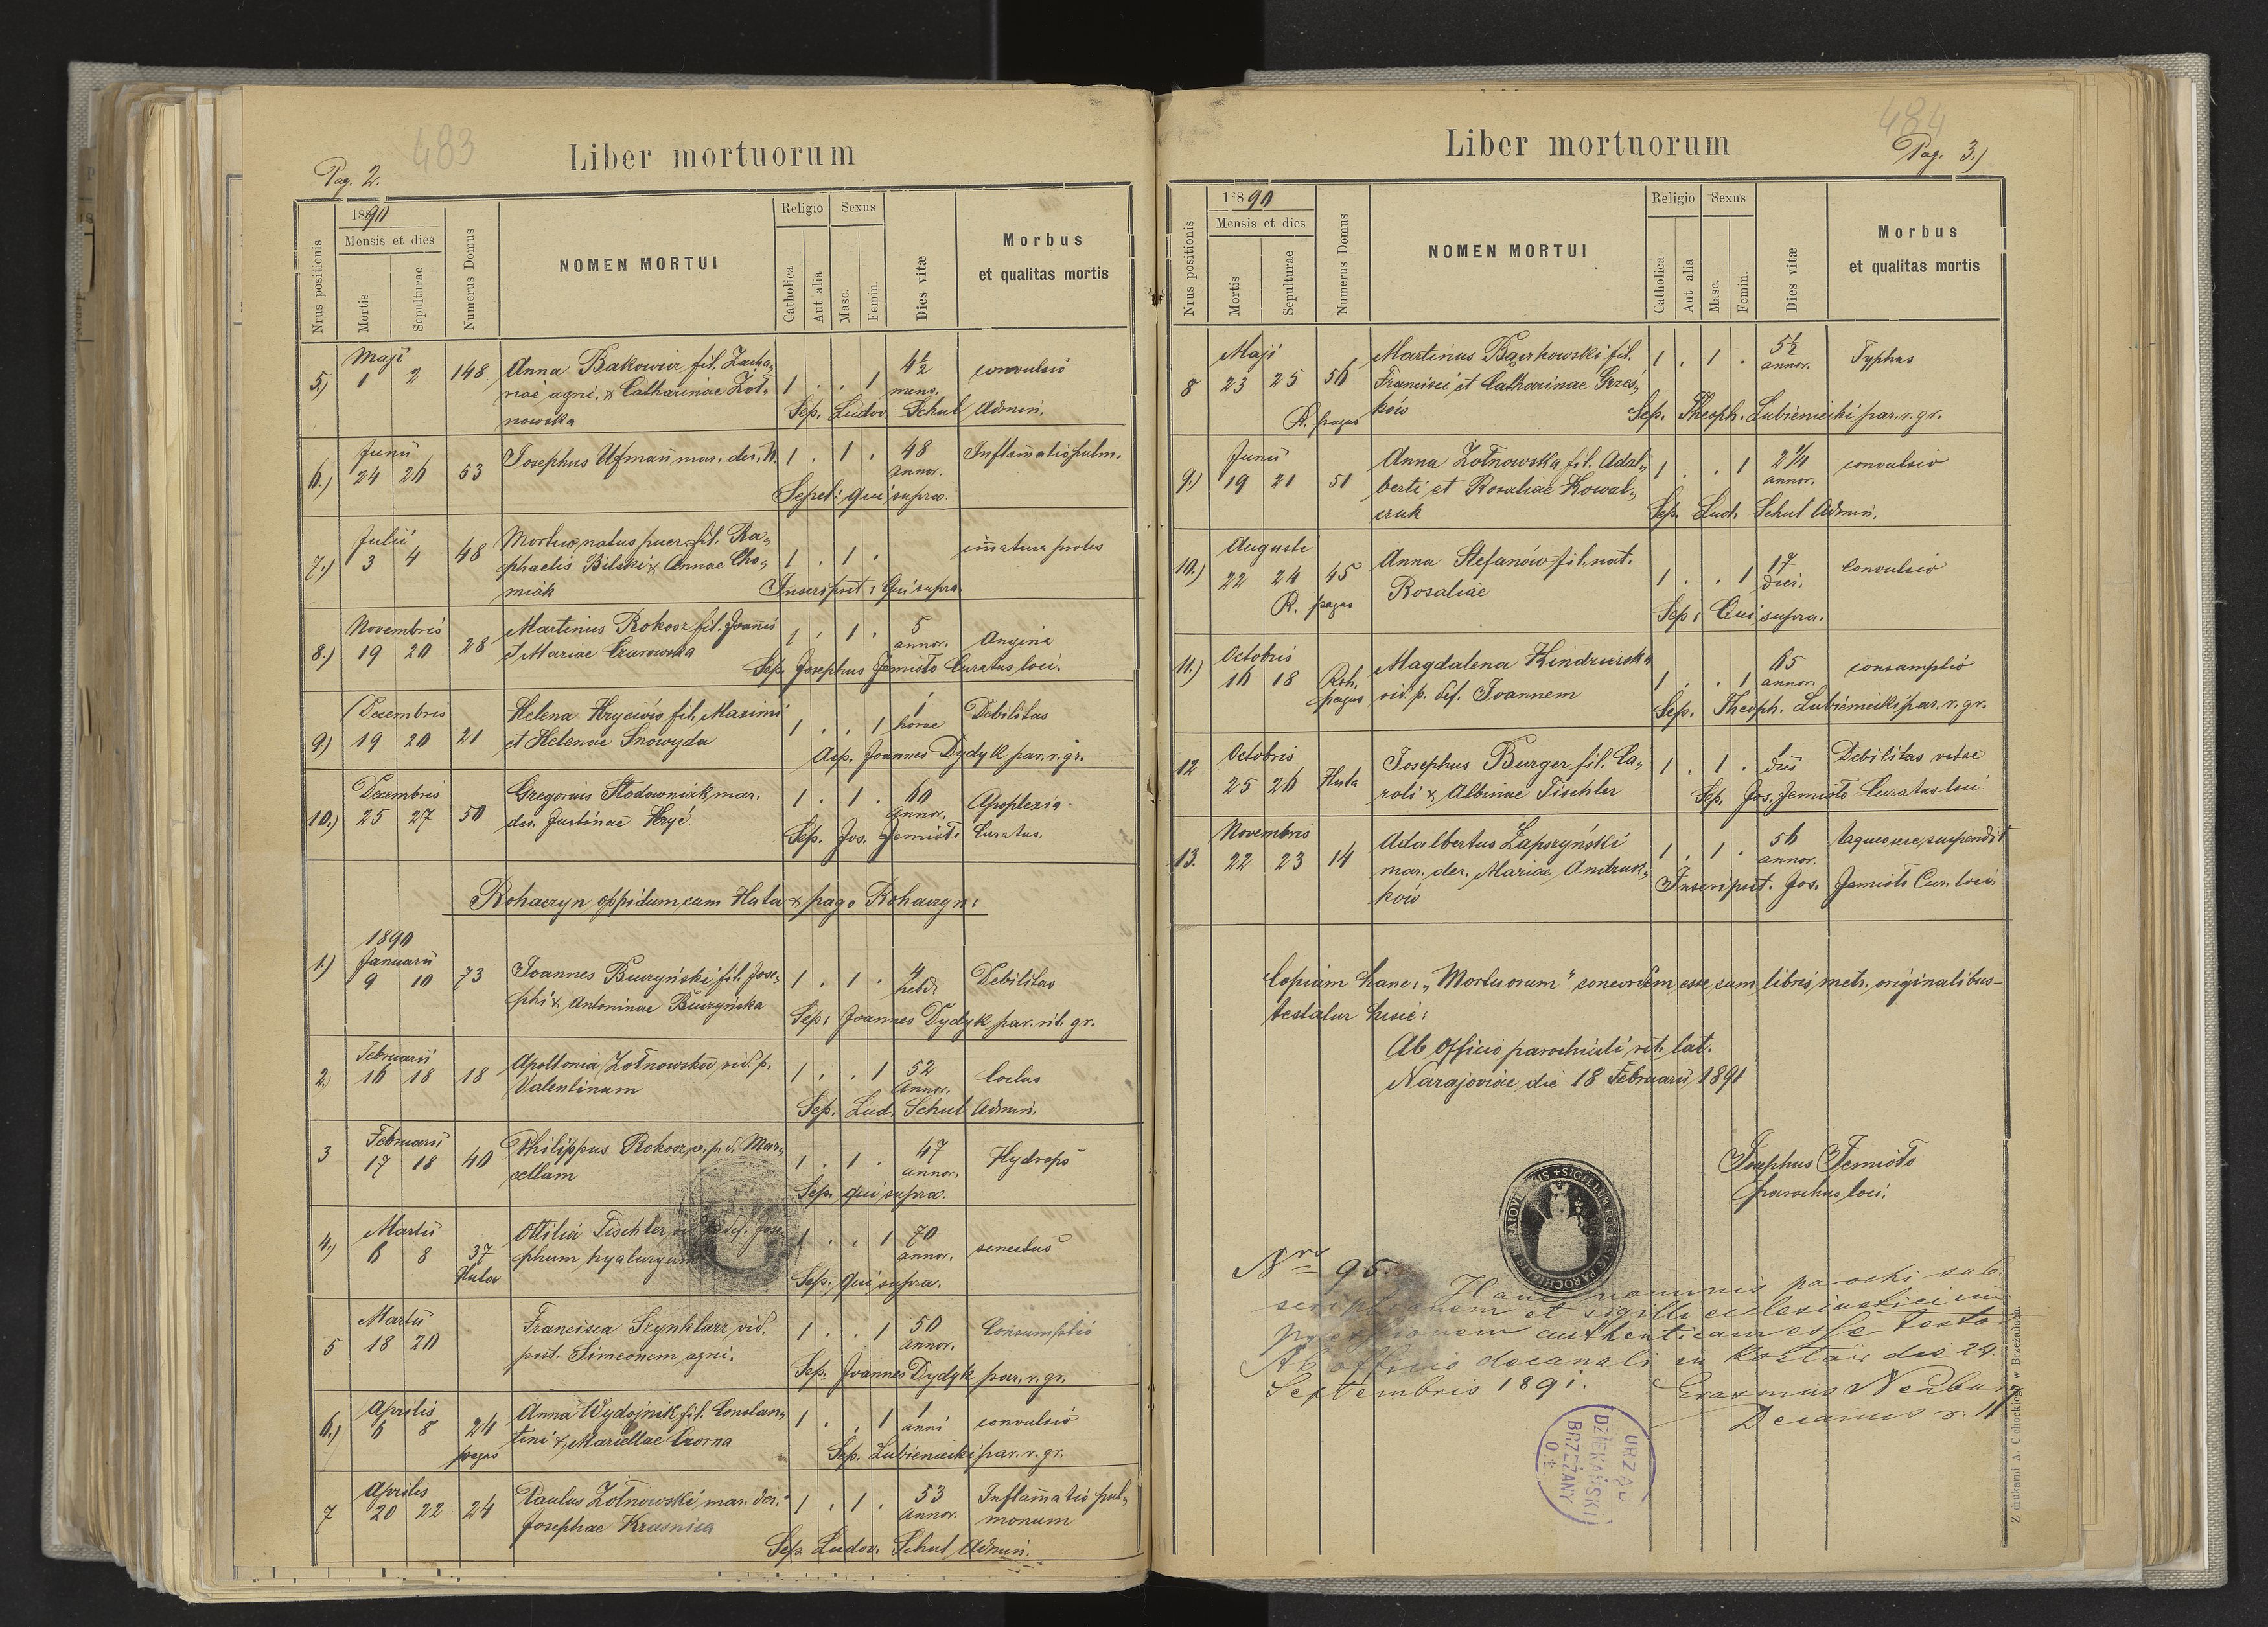 483
Pag. 2.
Liber mortuorum
Nrus positionis
1890
Mensis et dies
Mortis
Sepulturae
Numerus Domus
NOMEN MORTUI
Religio
Catholica
Aut alia
Sexus
Masc.
Femin.
Dies vitæ
Morbus
et qualitas mortis
Maji
5.) 1 2 148. Anna Bakowicz fil. Zacha„ 1 . . 1 4½ convulsio
riae agri. & Catharinae Żoł„ mens.
nowska Sep. Ludov. Schut Admin.
Junii
6.) 24 26 53 Josephus Ufman mar. der. N. 1 . 1 . 48 Inflam̄atio pulm.
annor.
Sepel: qui supra.
Julii
7.) 3 4 48 Mortuo natus puer fil. Ra„ 1 . 1 . im̄atura proles
phaelis Bilski & Annae Cho„
miak Inscripsit: Qui supra
Novembris
8.) 19 20 28 Martinus Rokosz fil. Joannis 1 . 1 . 5 Angina
et Mariae Czarowska annor.
Sep. Josephus Jemioło Curatus loci.
Decembris
9) 19 20 21 Helena Hryciów fil. Maximi 1 . . 1 1 Debilitas
et Helenae Snowyda horae
Sep. Joannes Dydyk par. r. gr.
Decembris
10.) 25 27 50 Gregorius Słodowniak mar. 1 . 1 . 60 Apoplexia
der. Justinae Hryć. Annor.
Sep. Jos. Jemioło Curatus.
Rohaczyn oppidum, cum Huta & pago Rohaczyn:
1890
Januarii
1.) 9 10 73 Joannes Buczyński fil. Jose„ 1 . 1 . 4 Debilitas
phi & Antoninae Buczyńska hebd.
Sep: Joannes Dydyk par. rit. gr.
Februarii
2.) 16 18 18 Apollonia Żołnowska vid. p. 1 . . 1 52
Valentinum Annor.
Sep. Lud. Schut Admin.
Februarii
3 17 18 40 Philippus Rokosz Mar„ 1 . 1 . 47 Hydrops
cellam annor.
Sep. qui supra.
Martii
4.) 6 8 37 Ottilia Tischler Jose„ 1 . . 1 70 senectus
Huta phum hyalurgum annor.
Sep. qui supra.
Martii
5 18 20 Francisca Szynklarz vid. 1 . . 1 50 Consumptio
post. Simeonem agri. annor.
Sep. Joannes Dydyk par. r. gr.
Aprilis
6.) 6 8 24 Anna Wydojnik fil. Constan„ 1 . . 1 1 convulsio
pagus tini & Mariellae Czorna anni
Sep. Lubieniecki par. r. gr.
Aprilis
7 20 22 24 Paulus Żołnowski mar. der. 1 . 1 . 53 Inflam̄atio pul„
Josephae Krasnica Annor. monum
Sep. Ludov. Schut Admin.
484
Liber mortuorum
Pag. 3.)
Nrus positionis
1890
Mensis et dies
Mortis
Sepulturae
Numerus Domus
NOMEN MORTUI
Religio
Catholica
Aut alia
Sexus
Masc.
Femin.
Dies vitæ
Morbus
et qualitas mortis
Maji
8 23 25 56 Martinus fil. 1 . 1 . 5½ Typhus
R. pagus Francisci et Catharinae Grześ„ annor.
ków Sep. Theoph. Lubieniecki par. r. gr.
Junii
9.) 19 21 51 Anna Żołnowska fil. Adal„ 1 . . 1 2¼ convulsio
berti et Rosaliae Kowal„ annor.
czuk Sep. Lud. Schut Admin.
Augusti
10.) 22 24 45 Anna Stefanów fil. nat. 1 . . 1 17 Convulsio
R. pagus Rosaliae dies.
Sep: Qui supra.
Octobris
11.) 16 18 Roh. Magdalena Kindzierska 1 . . 1 65 consumptio
pagus vid. p. def. Joannem annor.
Sep. Theoph. Lubieniecki par. r. gr.
Octobris
12 25 26 Huta Josephus Burger fil. Ca„ 1 . 1 . dies Debilitas vitae
roli & Albinae Tischler Sep. Jos. Jemioło Curatus loci
Novembris
13. 22 23 14 Adalbertus Zapszyński 1 . 1 . 56 laqueo sese suspendit
mar. der. Mariae Andrusz„ annor.
ków Inscripsit. Jos. Jemioło Cur. loci
Copiam hanc: „Mortuorum" concordem esse cum libris metr. originalibus
testatur hisce:
Ab Officio parochiali rit. lat.
Narajoviae die 18 Februarii 1891
Josephus Jemioło
parochus loci.
SIGILLUM ECCLESIÆ PAROCHIALIS NARAIOVIENSIS
Nro 95.
Hanc nominis parochi sub„
scriptionem et sigilli ecclesiastici im„
pressionem authenticam esse testor
Ab officio decanali in Kozłów die 24.
Septembris 1891.
Erazmus Neüburg
Decanus r. l.
URZĄD
DZIEKAŃSKI
BRZEŻANY
O.Ł.
Z drukarni A. Cehockiego w Brzeżanach.